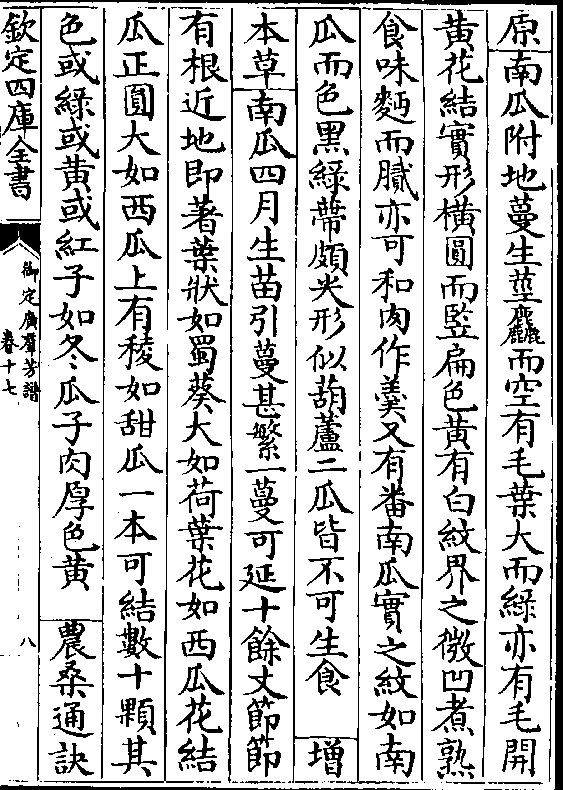 原南瓜附地蔓生莖麤而空有毛葉大而綠亦有毛開
黄花結實形横圓而竪扁色黄有白紋界之微凹煮熟
食味麪而膩亦可和肉作羮又有番南瓜實之紋如南
瓜而色黑綠蔕頗尖形似葫蘆二瓜皆不可生食 增
本草南瓜四月生苗引蔓甚繁一蔓可延十餘丈節節
有根近地即著葉狀如蜀葵大如荷葉花如西瓜花結
瓜正圓大如西瓜上有稜如甜瓜一本可結數十顆其
色或綠或黄或紅子如冬瓜子肉厚色黄 農桑通訣
欽定四庫全書
御定廣羣芳譜
卷十七
八